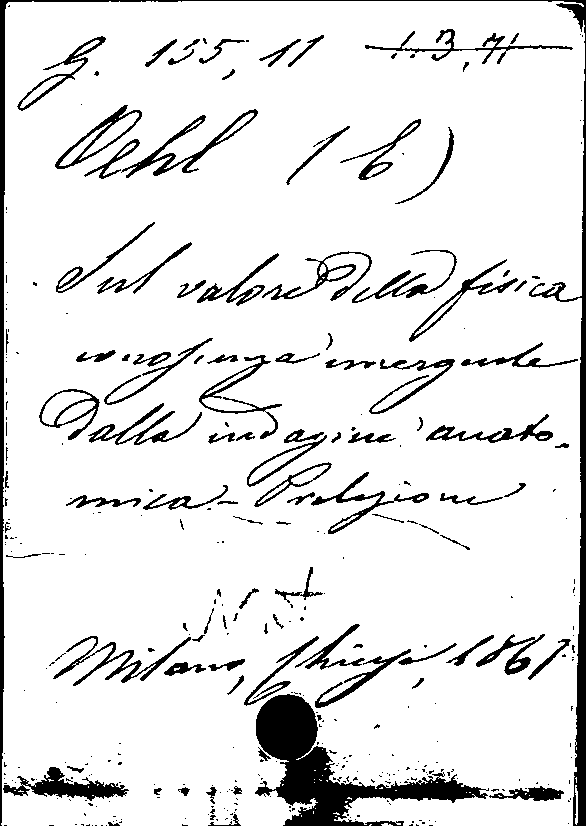 G. 155, 11 1.3,71
Oehl (E)
Sul valore della fisica
emergente
dalla indagine anato-
mica - Prelezione
Milano, Chiusi, 1867